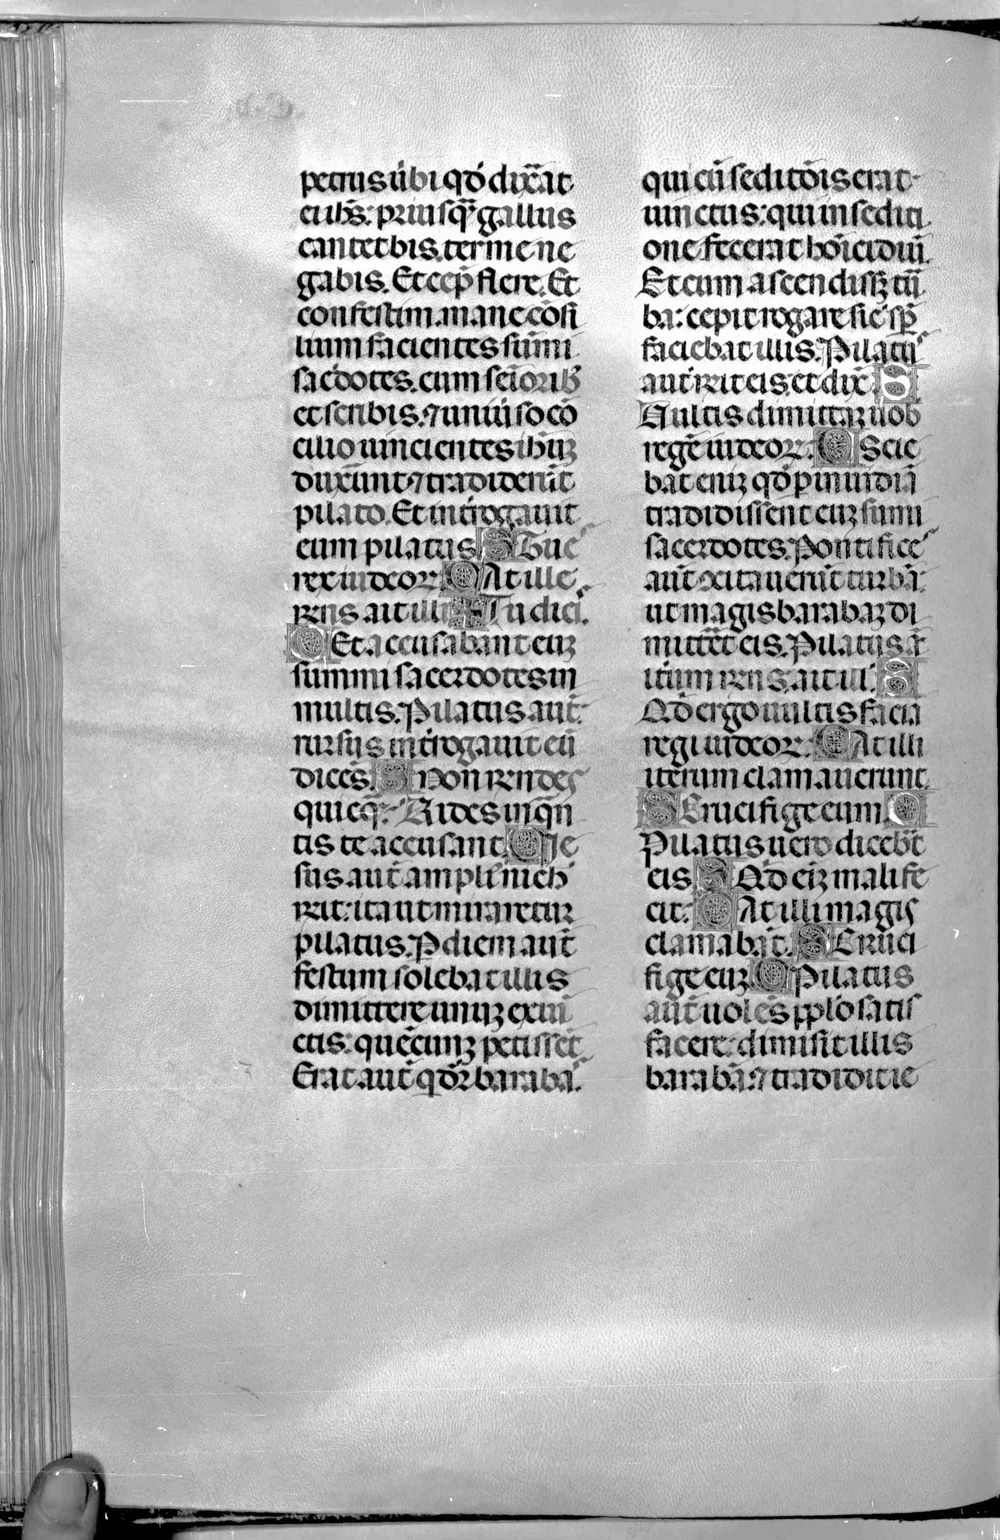 petrus ūbi qđ dix̄at
ei ih̄s: priusq̄ gallus
cantet bis. ter me ne
gabis. Et cep̄ flere. Et
confestim mane cōsi
lium facientes sūmi
sac̄dotes. cum senīoribꝫ
et scribis. ⁊ uniū̄so cō
cilio uincientes ih̄uꝫ
duxer̄unt ⁊ tradider̄ūt
pilato. Et int̄rogauit
eum pilatus. S Tu e᷒
rex iudeoꝝ. C At ille
rn̄s ait illi. ✠ Tu dici᷒.
C Et accusabant euꝫ
summi sacerdotes in
multis. Pilatus aut̄
rursus int̄rogauit eū
dicēs. S Non rn̄des
quicq̄. Uides in q̄n
tis te accusant. C Ie
sus aut̄ ampli᷒ nich̄
rn̄t: ita ut miraretur
pilatus. P diem aut̄
festum solebat illis
dimittere unuꝫ ex uī
ctis: quēcunꝫ petissēt.
Erat aut̄ q̄ dr̄ baraba᷒.
qui cū seditōis erat
uinctus: qui in sediti
one fecerat hōicidiū.
Et cum ascendissꝫ tū
ba: cepit rogare sic̄ sp̄
faciebat illis. Pilatu᷒
aut̄ rn̄it eis. et dix̄. S
Uultis dimittā uob
regē iudeoꝝ. C Scie
bat enī qđ p inuidiā
tradidissent euꝫ sūmi
sacerdotes. Pontifice᷒
aūt ↄcitauerūt turbā:
ut magis barabaꝫ di
mittēt eis. Pilatus āt
itūm rn̄s. ait ill̄. S
Qđ ergo uultis faciā
regi iudeoꝝ. C At illi
iterum clamauerunt.
S Crucifige eum. C
Pilatus uero diceb̄t
eis. S Qđ eī mali fe
cit. C At illi magis
clamabāt. S Cruci
fige euꝫ. C Pilatus
aūt uolēs pplo satis
facere: dimisit illis
barabā: ⁊ tradidit ie